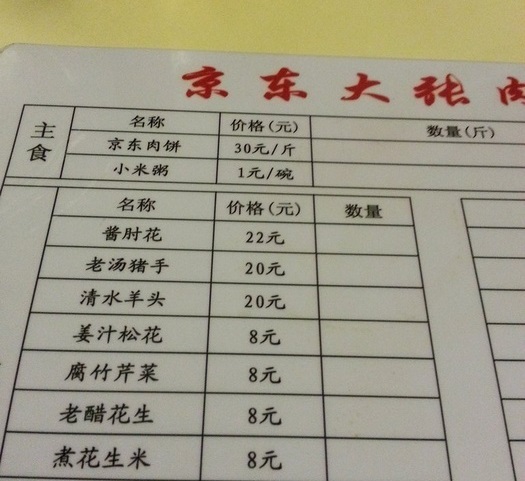 京东大张肉
主食
名称 价格(元) 数量(斤)
京东肉饼 30元/斤
小米粥 1元/碗
名称 价格(元) 数量
酱肘花 22元
老汤猪手 20元
清水羊头 20元
姜汁松花 8元
腐竹芹菜 8元
老醋花生 8元
煮花生米 8元